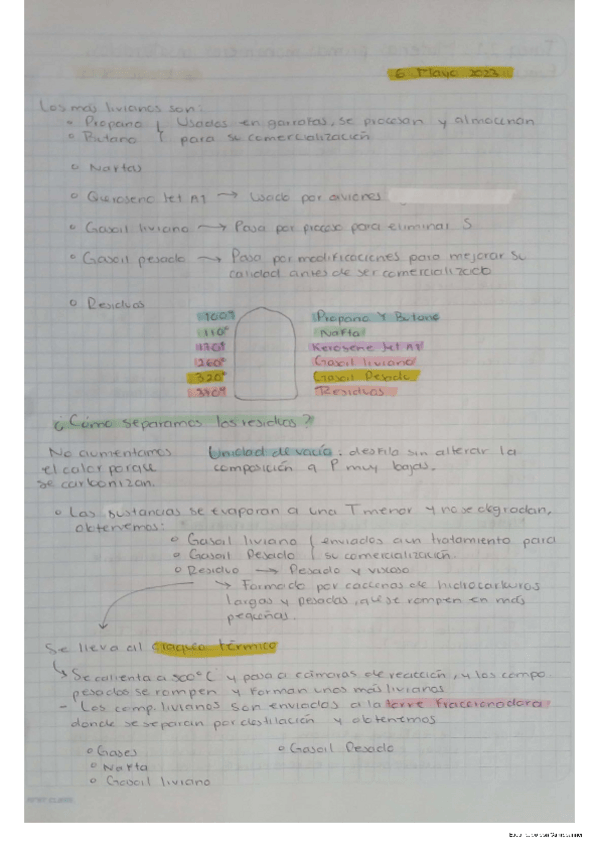 6 Mayo 2023
Los más livianos son:
° Propano } Usados en garrafas, se procesan y almacenan
° Butano } para su comercialización
° Naftas
° Querosene Jet A1 → Usado por aviones
° Gasoil liviano → Pasa por proceso para eliminar S
° Gasoil pesado → Pasa por modificaciones para mejorar su
calidad antes de ser comercializado
° Residuos
100° Propano y Butano
110° Nafta
Kerosene Jet A1
260° Gasoil liviano
320° Gasoil Pesado
Residuos
¿Cómo separamos los residuos?
No aumentamos
el calor porque
se carbonizan.
Unidad de vacío: destila sin alterar la
composición a P muy bajas.
° Las sustancias se evaporan a una T menor y no se degradan,
obtenemos:
° Gasoil liviano } enviados a un tratamiento para
° Gasoil Pesado } su comercialización.
° Residuo → Pesado y viscoso
→ Formado por cadenas de hidrocarburos
largas y pesadas, que se rompen en más
pequeñas.
Se lleva al craqueo térmico
↳ Se calienta a 500°C y pasa a cámaras de reacción, y los comp.
pesados se rompen y forman unos más livianos
- Los comp. livianos son enviados a la torre fraccionadora
donde se separan por destilación y obtenemos
° Gases
° Nafta
° Gasoil liviano
° Gasoil Pesado